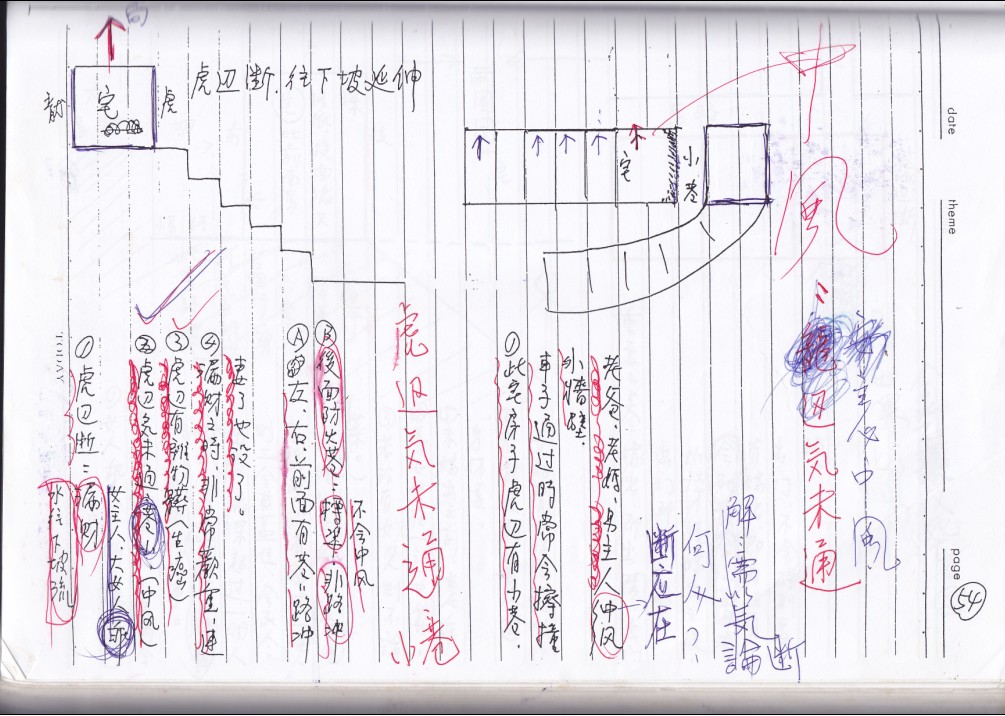 向
龍
宅
虎
虎边断.往下坡延伸
宅
小巷
中風
龍边気未通
注意中風
解:需以気論断
断应在
何处?
老爸、老妈、男主人 仲风
小墙壁.
車子通过時常会擦撞
①此宅房子虎边有小巷.
虎边気未通
小巷
不会中风
Ⓑ後面防火巷:擇÷非路冲
Ⓐ 左、右、前面有巷÷路冲
妻了也没了。
④漏财之時非常嚴重,連
③虎边有雜物藥(生癌)
②虎边気未通 巷(仲风
女主人.大女
①虎边断:漏财
水往下坡流
date
theme
page
54